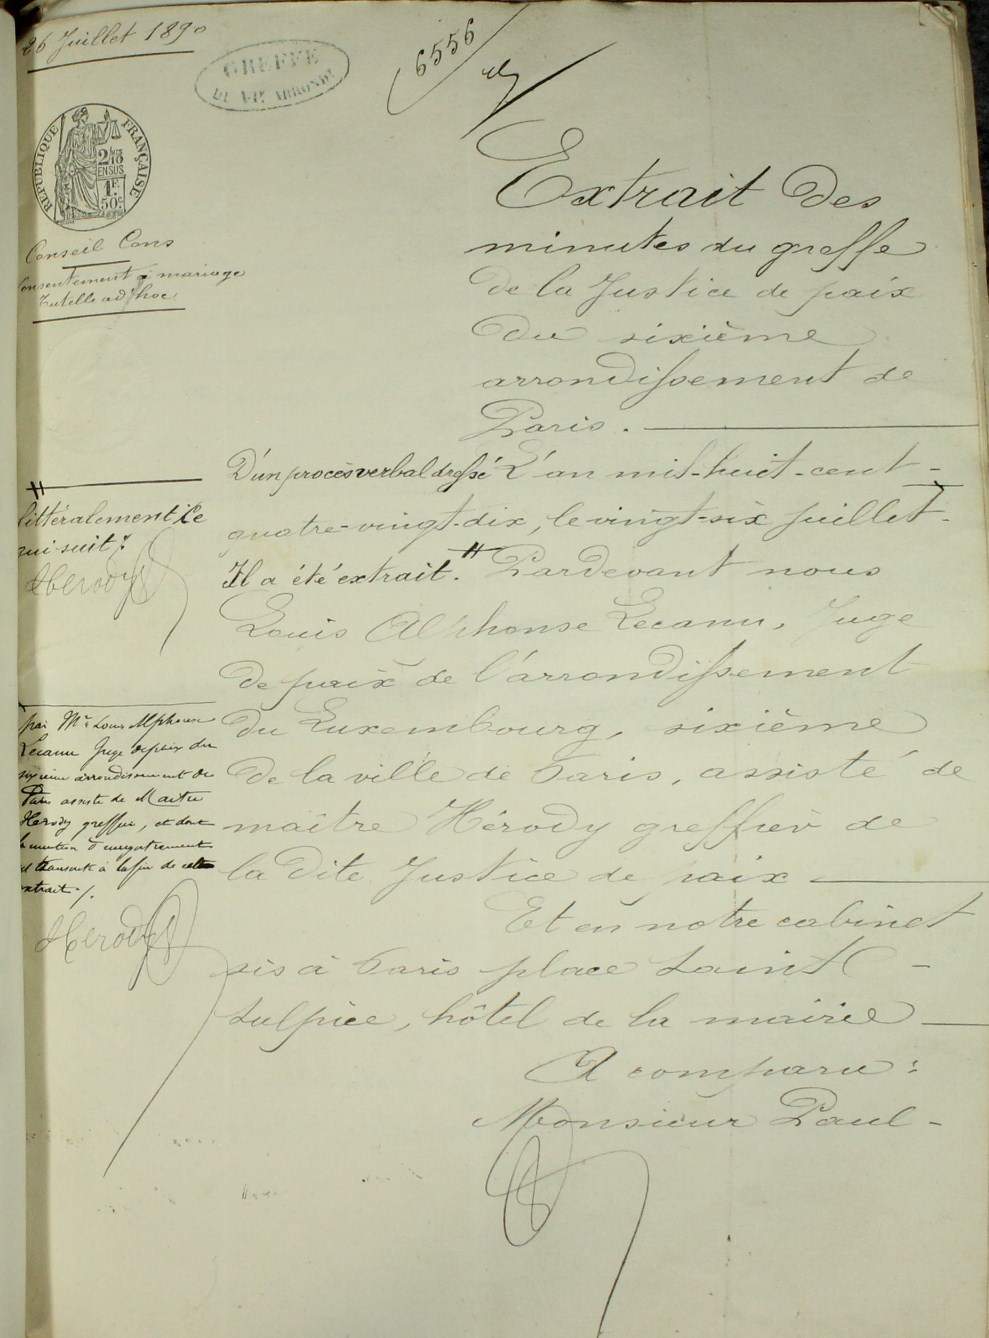 26 Juillet 1890
GREFFE
DU VIe ARRONDt
6556
RÉPUBLIQUE FRANÇAISE
2/10mes
EN SUS
1F.
50c.
Conseil Cons
Consentement à mariage
Tutelle ad'hoc
Extrait Des
minutes du greffe
De la Justice de paix
Du sixième
arrondissement de
Paris.
D'un procès verbal dressé L'an mil-huit-cent-
quatre-vingt-dix, le vingt-six juillet-
Il a été extrait. Pardevant nous
Louis Alphonse Lecanu, Juge
de paix de l'arrondissement
du Luxembourg, sixième
De la ville de Paris, assisté de
maître Hérody greffier de
la dite Justice de paix
Et en notre cabinet
sis à Paris place Saint-
Sulpice, hôtel de la mairie
A comparu :
Monsieur Paul-
littéralement ce
qui suit :
Herody
par Mr Louis Alphonse
Lecanu Juge de paix du
sixième arrondissement de
Paris assisté de Maitre
Herody greffier, et dont
la mention d'enregistrement
est transcrite à la fin de cet
extrait ./.
Herody